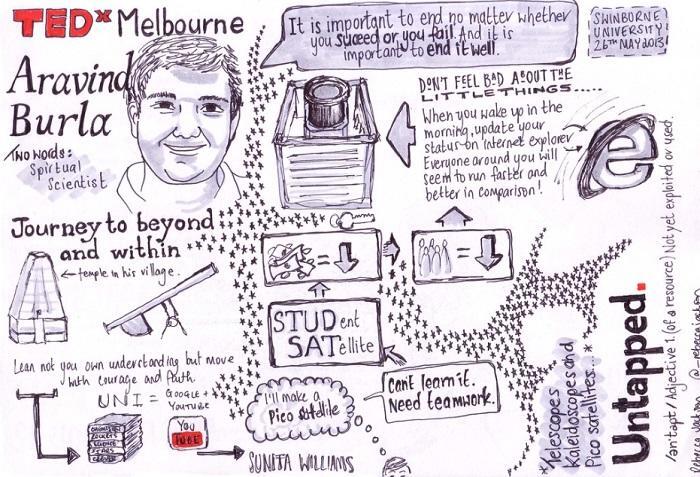 TEDx Melbourne
Aravind
Burla
TWO WORDS:
Spirtual
Scientist
It is important to end no matter whether
you suceed or you fail. And it is
important to end it well.
SWINBORNE
UNIVERSITY
26TH MAY 2013
DON'T FEEL BAD ABOUT THE
LITTLE THINGS.....
When you wake up in the
morning, update your
status on internet explorer
Everyone around you will
seem to run faster and
better in comparison!
e
Journey to beyond
and within
temple in his village.
=
=
STUDent
SATellite
Lean not you own understanding but move
with courage and faith.
UNI = GOOGLE +
YOUTUBE
ROCKETS
SCIENCE
STARS
You
TUBE
SUNITA WILLIAMS
I'll make a
Pico satellite
Can't learn it.
Need teamwork.
*Telescopes
Kaleidoscopes and
Pico satellites...*
Untapped.
/ʌntapt / Adjective 1. (of a resource) Not yet exploited or used.